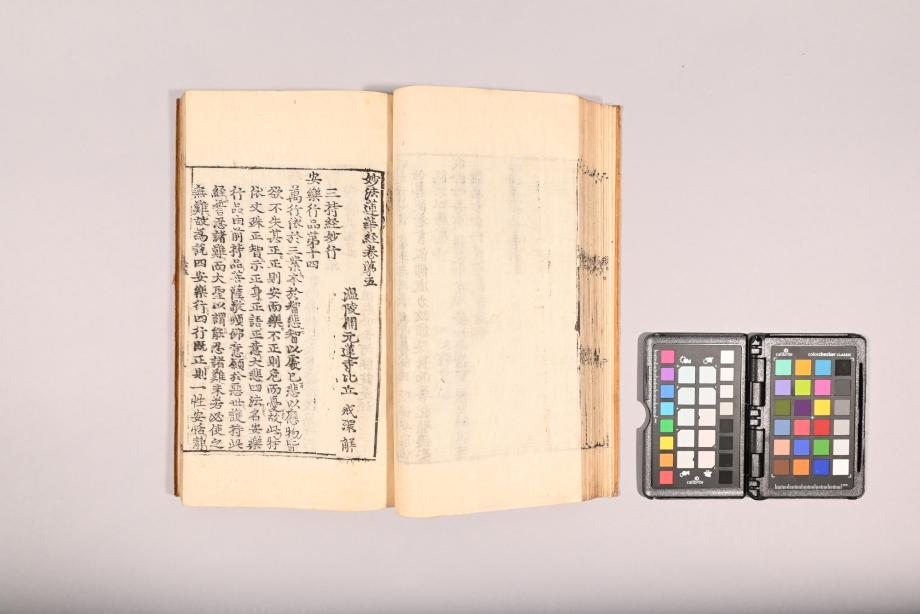 妙法蓮華經卷第五
溫陵開元蓮寺比丘 戒環 解
三持經妙行
安樂行品第十四
萬行依於三業本於智悲智以處己悲以應物皆
欲不失其正正則安而樂不正則危而憂故此行
依文殊正智示正身正語正意大悲四法名安樂
行品由前持品菩薩敬順佛意願於惡世護持此
經誓忍諸難而大聖以謂能忍諸難未若必使之
無難故為說四安樂行四行旣正則一性安恬
calibrite
calibrite
colorchecker CLASSIC